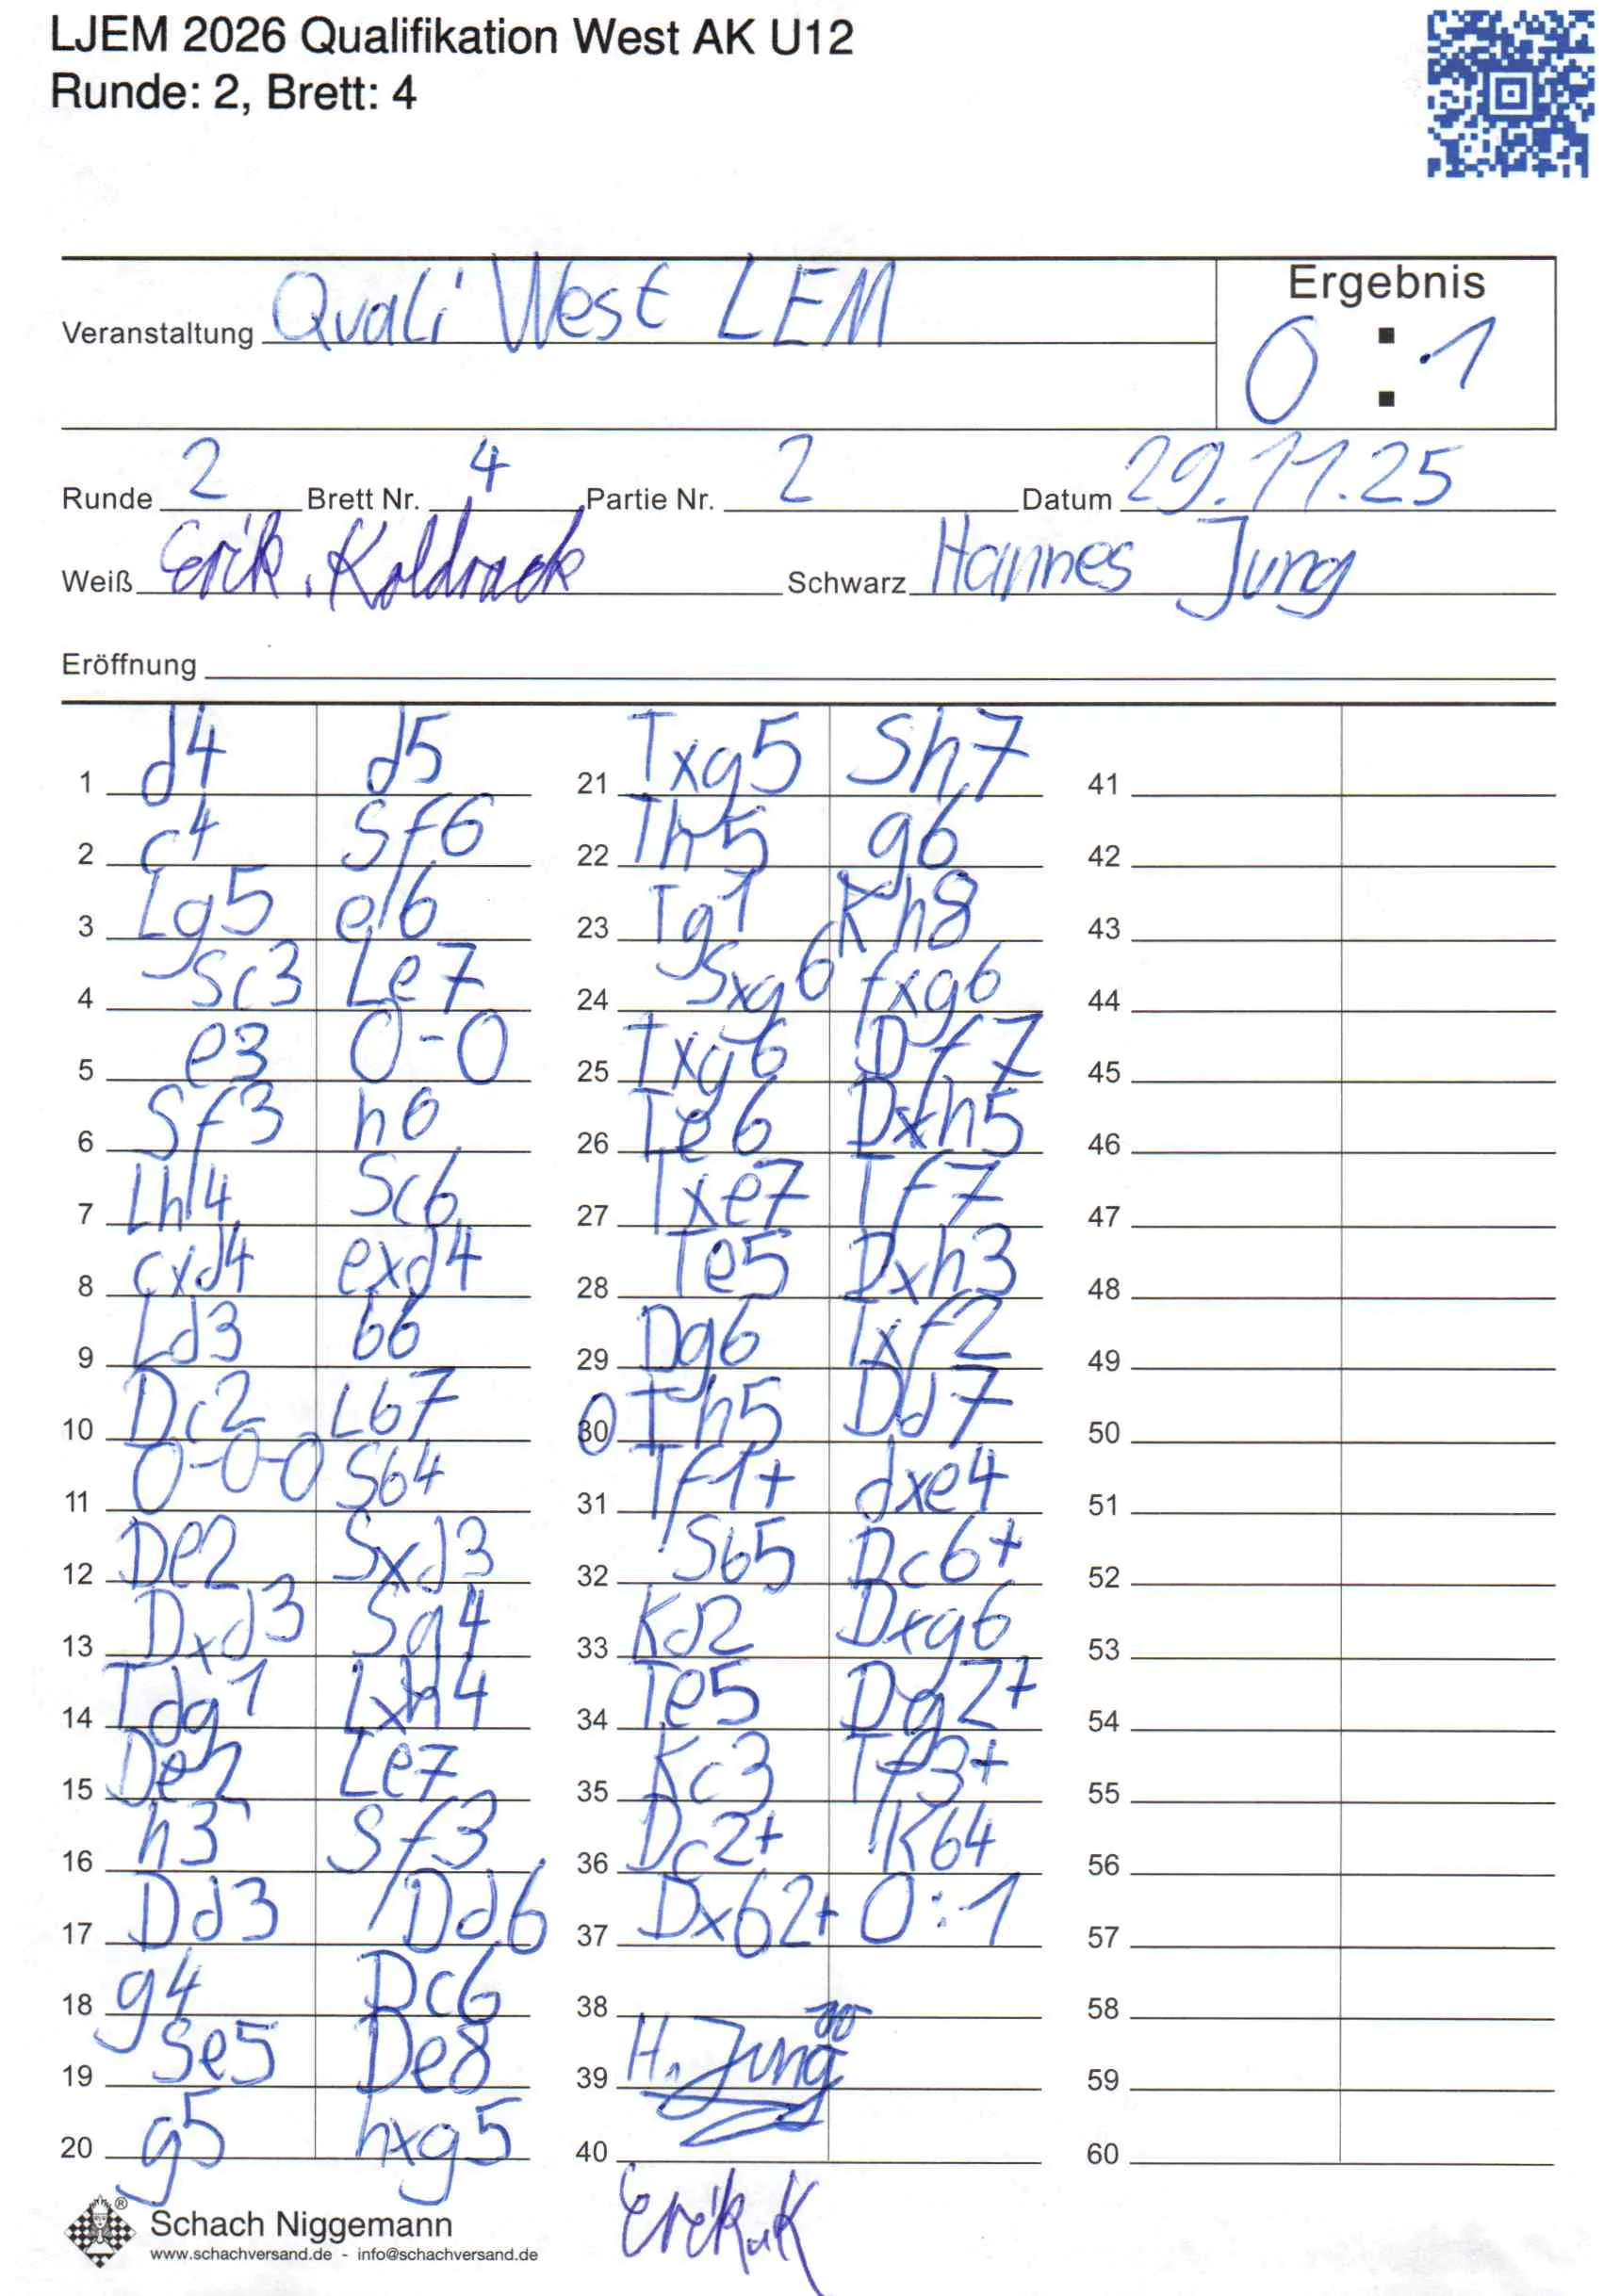 LJEM 2026 Qualifikation West AK U12
Runde: 2, Brett: 4
Veranstaltung Quali West LEM
Ergebnis
0 : 1
Runde 2 Brett Nr. 4 Partie Nr. 2 Datum 29.11.25
Weiß Erik. Koldrack Schwarz Hannes Jung
Eröffnung
1 d4 d5 21 Txg5 Sh7 41
2 c4 Sf6 22 Th5 g6 42
3 Lg5 e6 23 Tg1 Kh8 43
4 Sc3 Le7 24 Sxg6 fxg6 44
5 e3 0-0 25 Txg6 Df7 45
6 Sf3 h6 26 Te6 Dxh5 46
7 Lh4 Sc6 27 Txe7 Tf7 47
8 cxd4 exd4 28 Te5 Dxh3 48
9 Ld3 b6 29 Dg6 Txf2 49
10 Dc2 Lb7 30 Th5 Dd7 50
11 0-0-0 Sb4 31 Tf1+ dxe4 51
12 De2 Sxd3 32 Sb5 Dc6+ 52
13 Dxd3 Sg4 33 Kd2 Dxg6 53
14 Tdg1 Lxh4 34 Te5 Dg2+ 54
15 De2 Le7 35 Kc3 Tf3+ 55
16 h3 Sf3 36 Dc2+ Kb4 56
17 Dd3 Dd6 37 Dxb2+ 0:1 57
18 g4 Dc6 38 58
19 Se5 De8 39 H. Jung 59
20 g5 hxg5 40 60
Erik K
Schach Niggemann
www.schachversand.de - info@schachversand.de